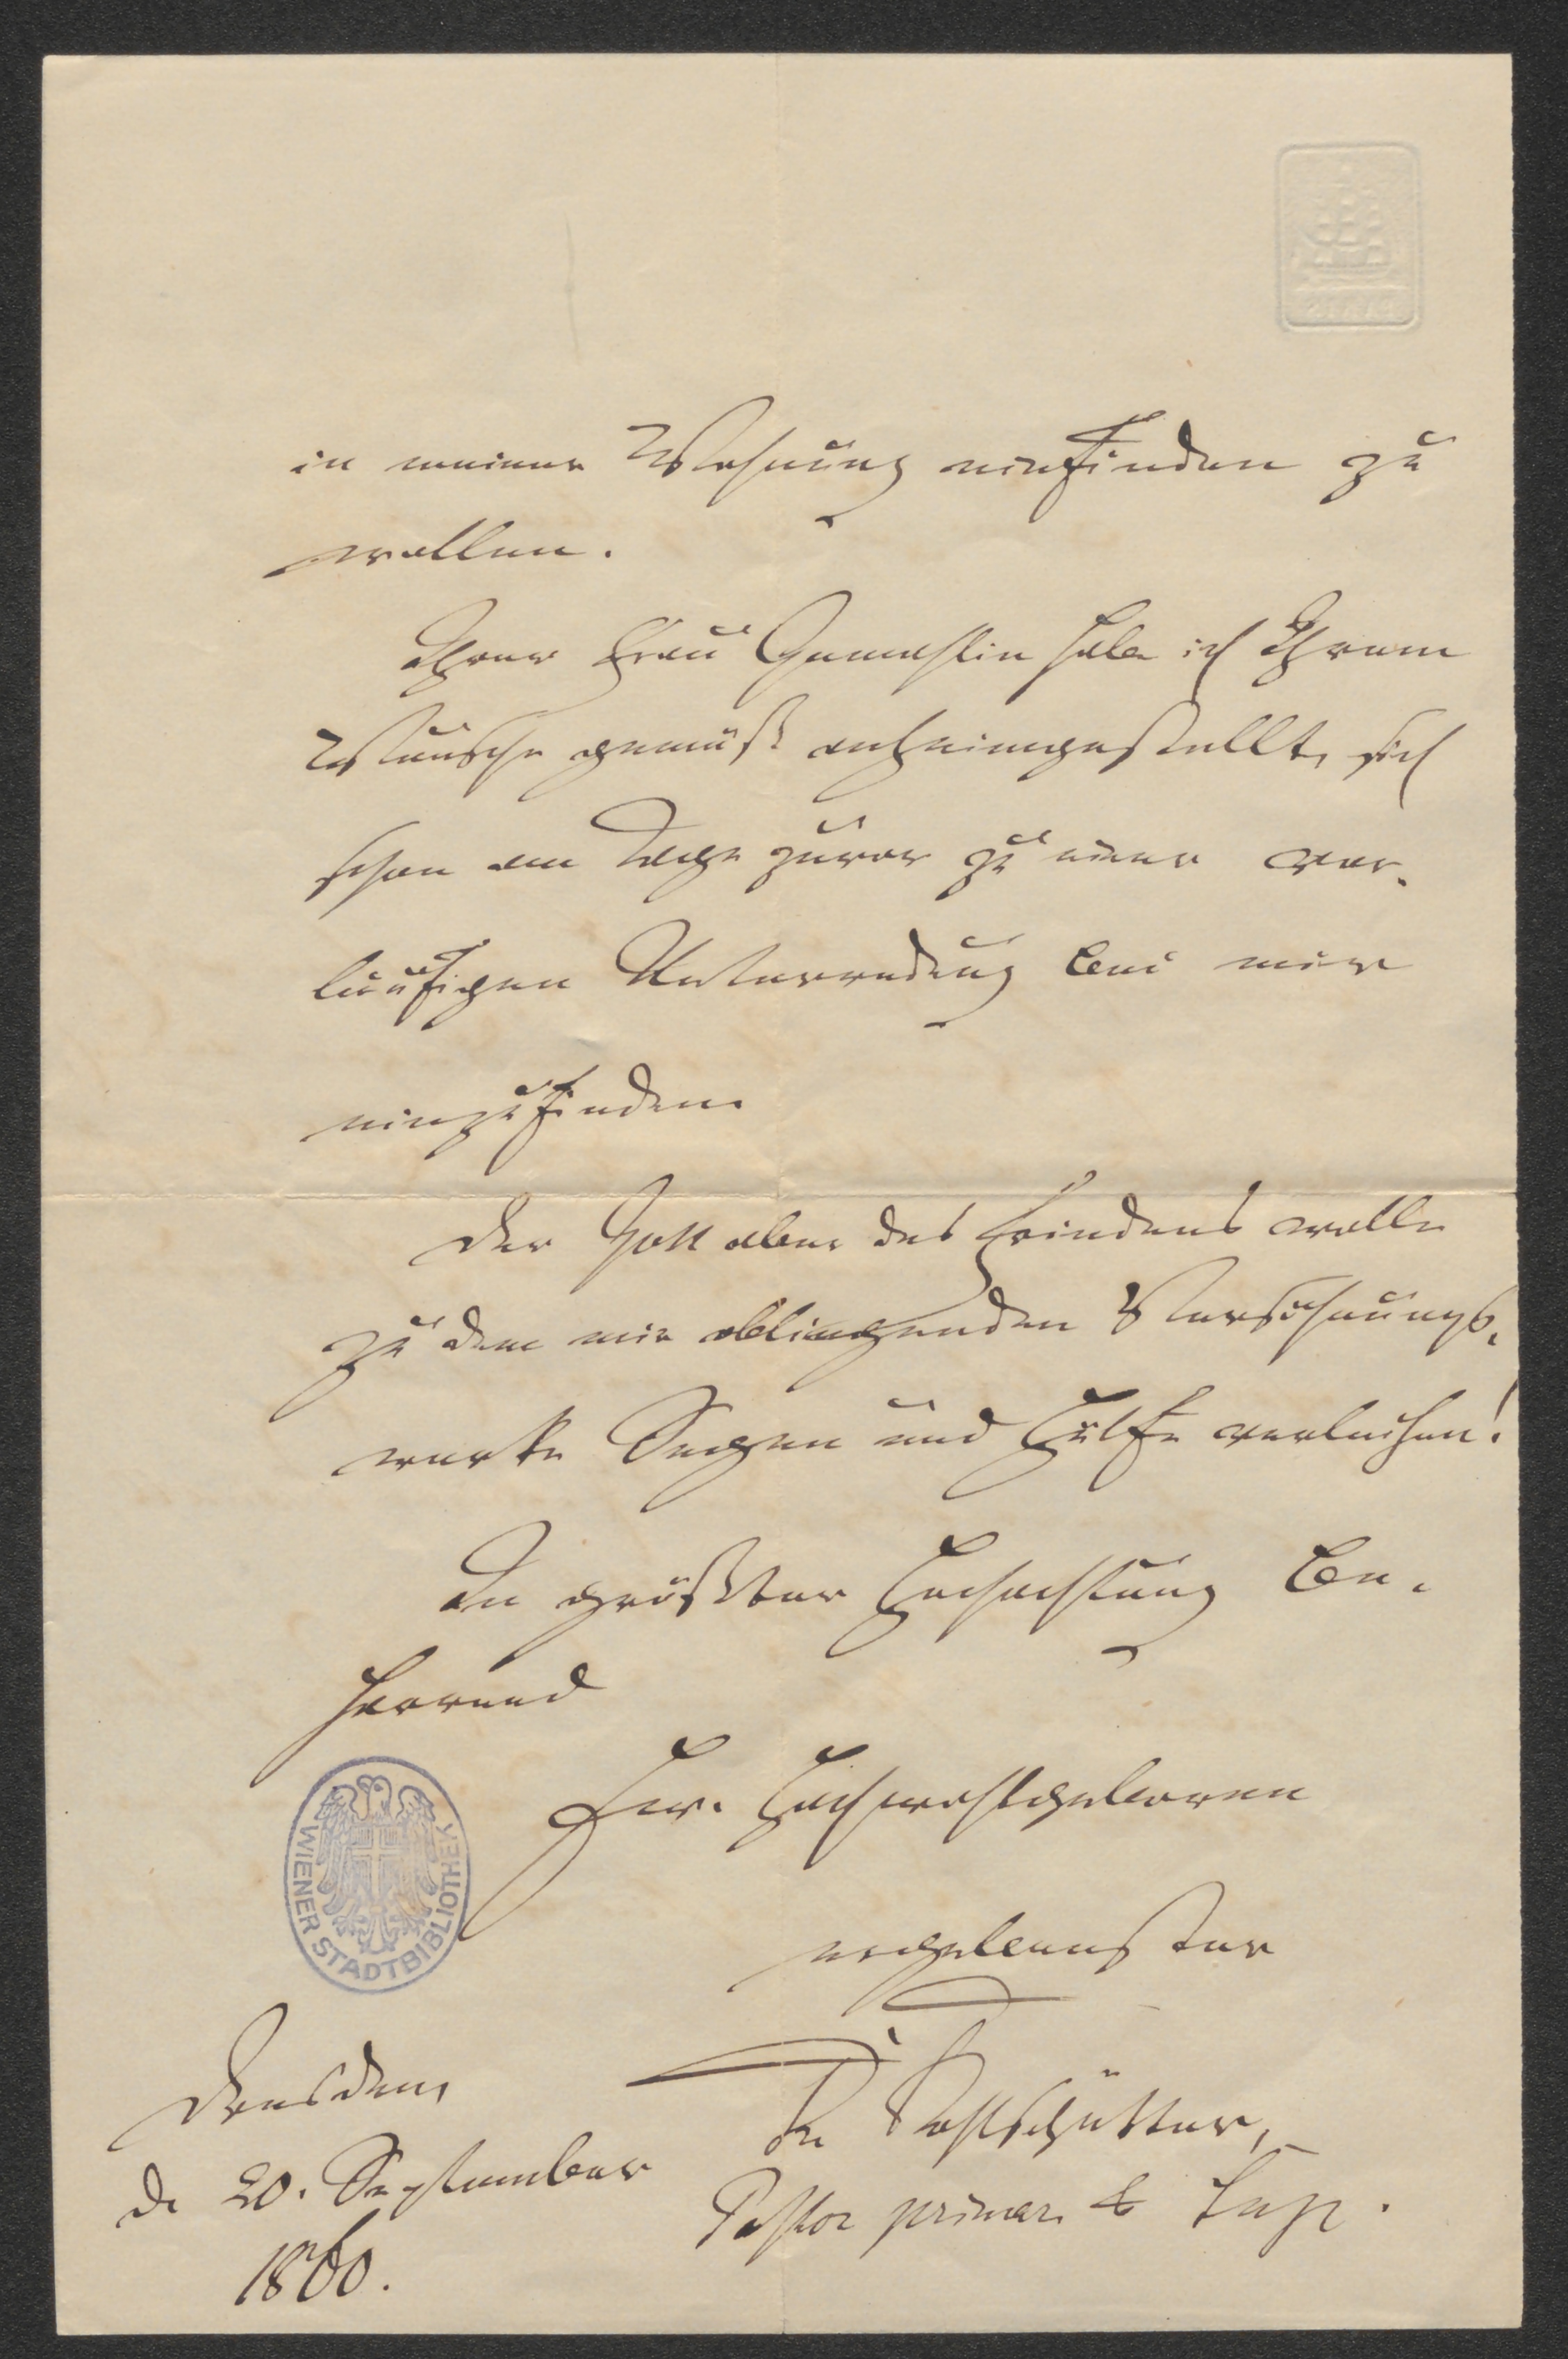 in meiner Wohnung einfinden zu
wollen.
Ihrer Frau Gemahlin habe ich Ihrem
Wunsche gemäß anheimgestellt, sich
schon am Tage zuvor zu einer vor-
läufigen Unterredung bei mir
einzufinden.
Der Gott aber des Friedens wolle
zu dem mir obliegenden Versöhnungs-
werke Segen und Hülfe verleihen!
In größter Hochachtung be-
harrend
Ew. Hochwohlgeboren
ergebenster
Dresden,
d. 20. September
1860.
Dr Kohlschütter,
Pastor primar. & Sup.
WIENER STADTBIBLIOTHEK